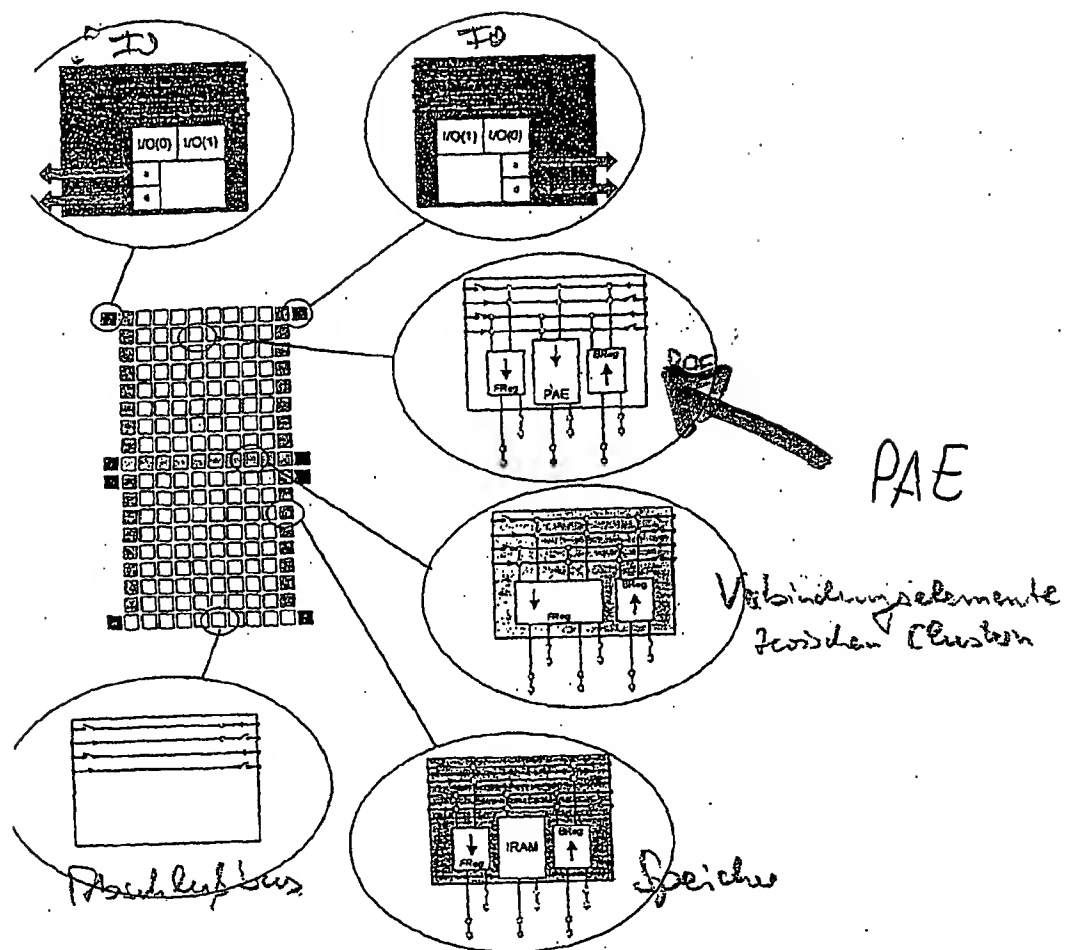 IO
IO
I/O(0) I/O(1)
a
d
I/O(1) I/O(0)
a
d
FReg
PAE
BReg
PAE
FReg
BReg
Verbindungselemente
zwischen Clustern
FReg
IRAM
BReg
Speicher